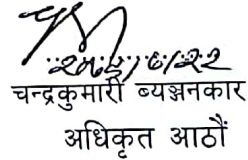 चन्द्रकुमारी ब्यञ्जनकार
अधिकृत आठौं